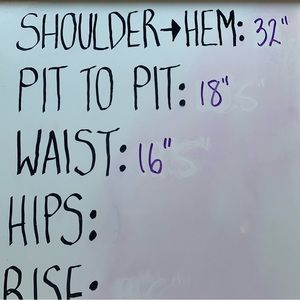 SHOULDER→HEM: 32"
PIT TO PIT: 18"
WAIST: 16"
HIPS:
RISE: